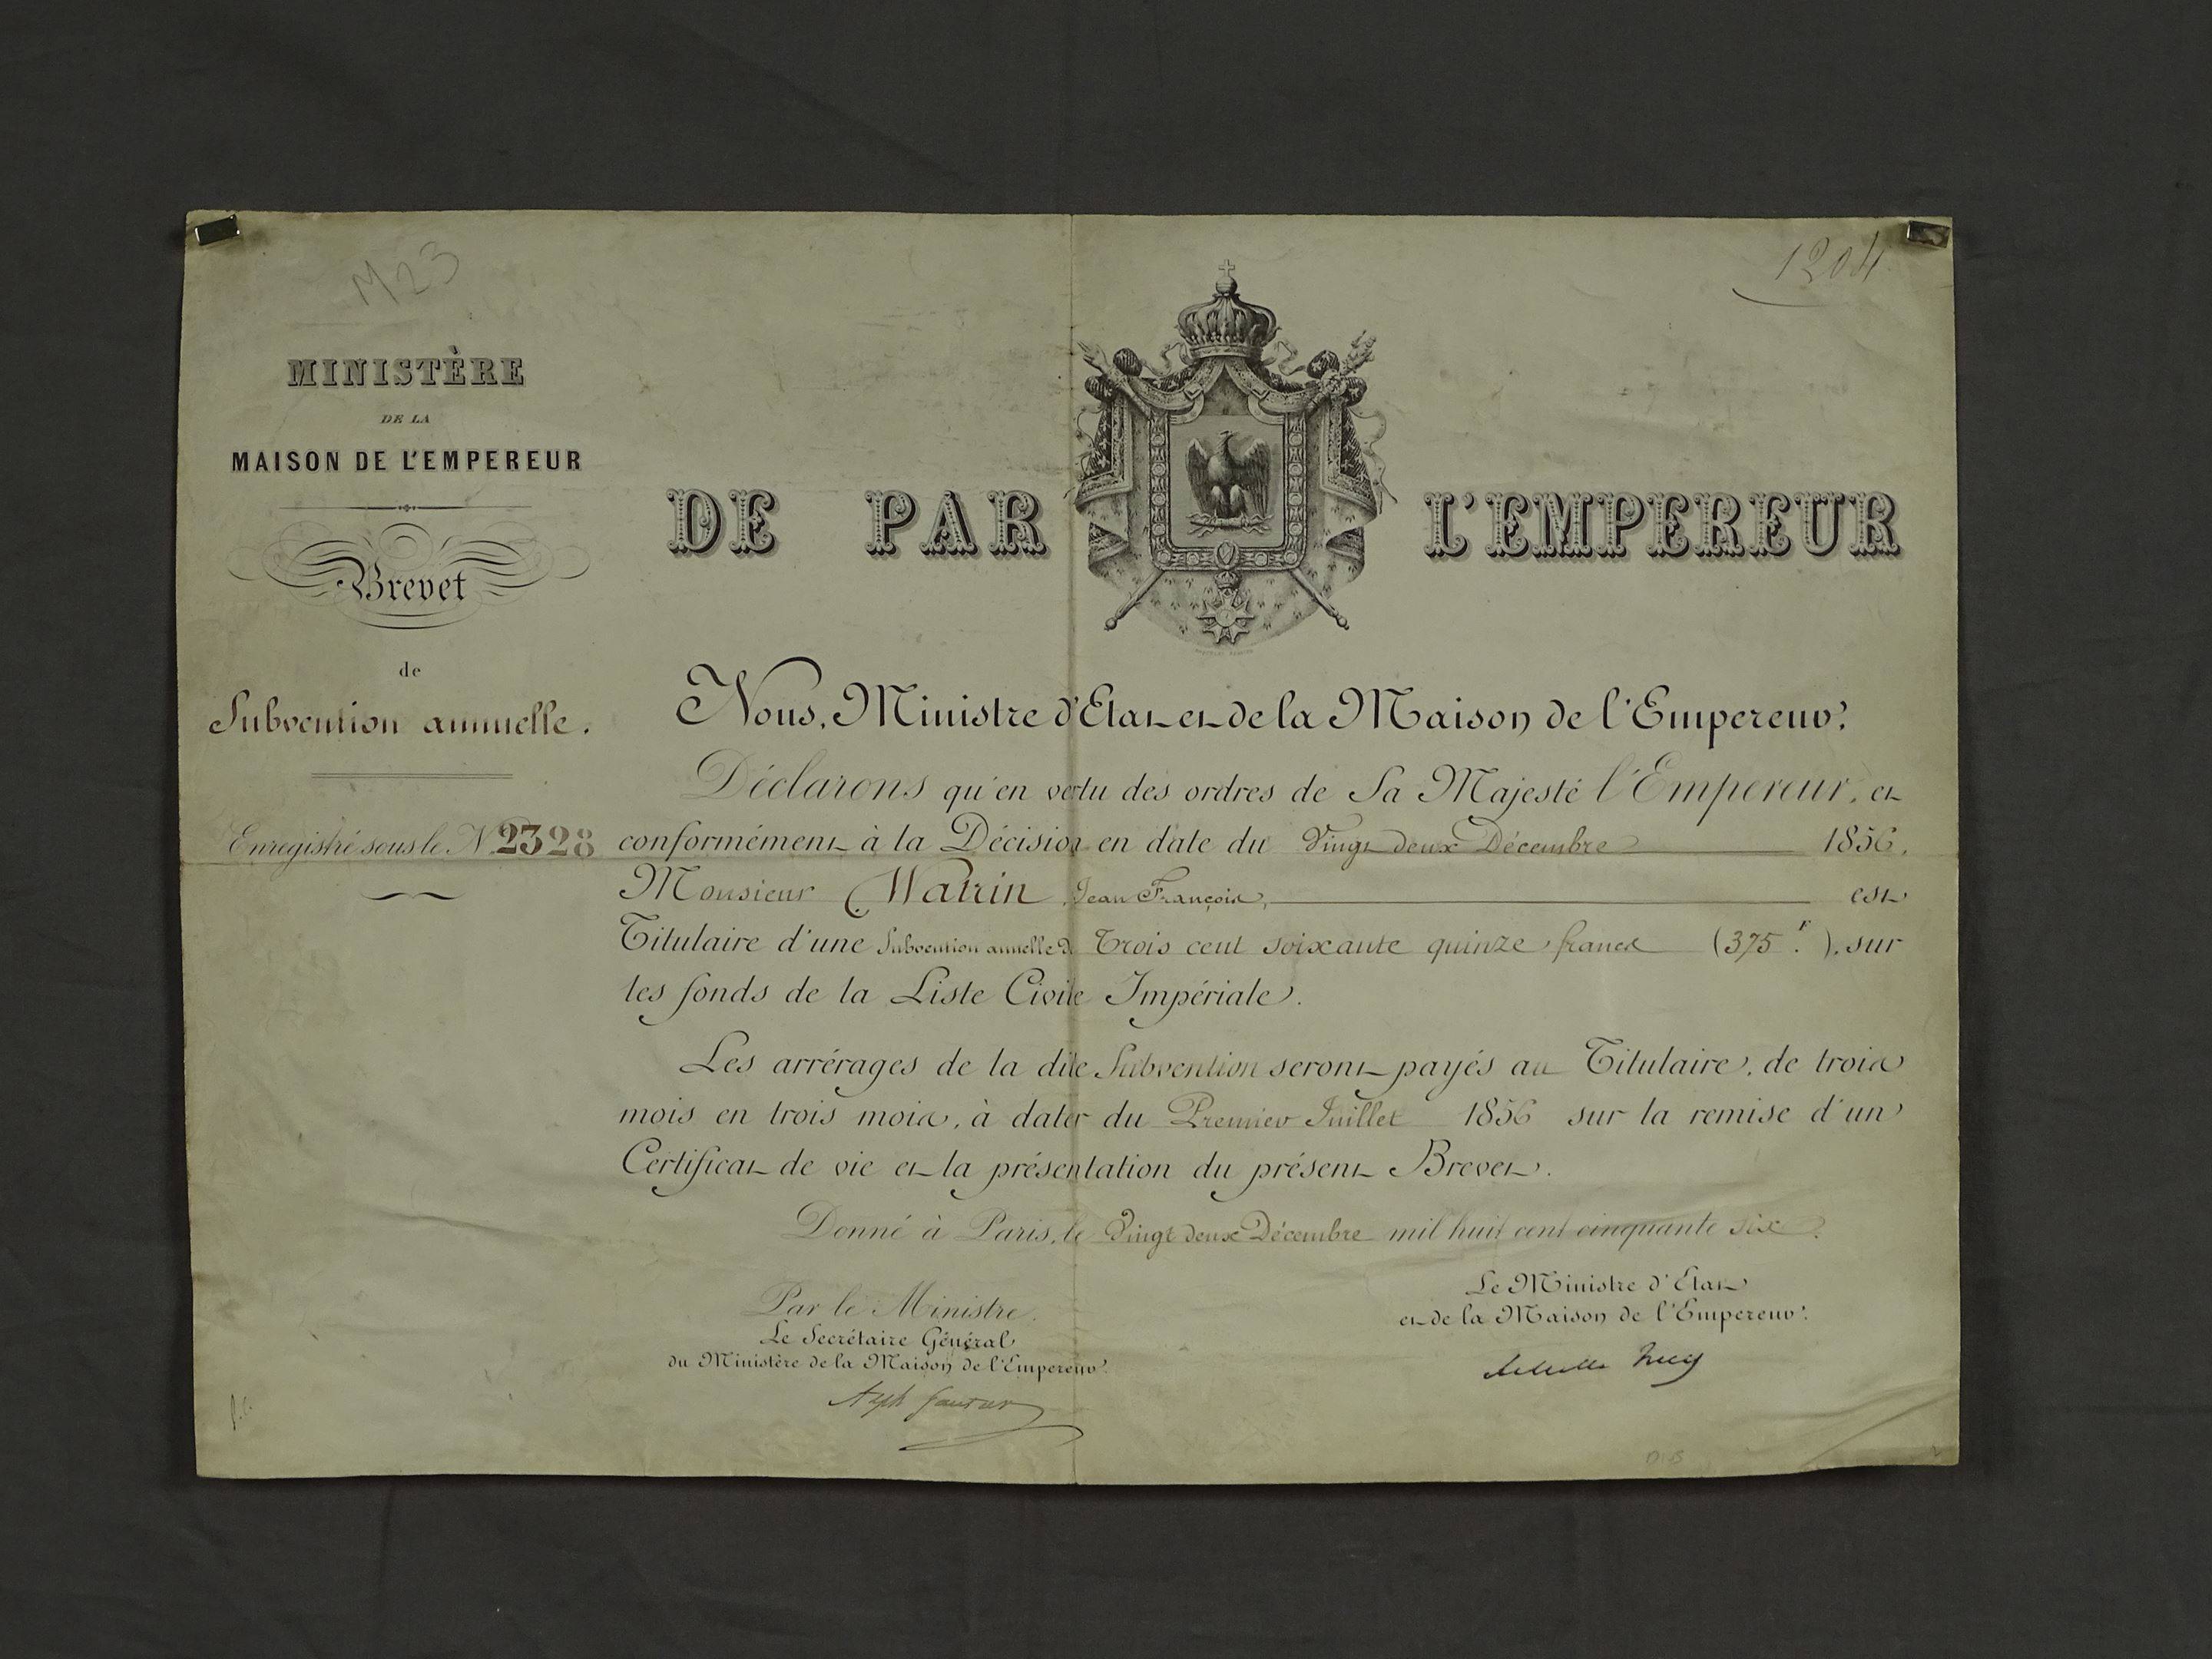 M23
1204
MINISTÈRE
DE LA
MAISON DE L'EMPEREUR
Brevet
de
Subvention annuelle.
Enregistré sous le N° 2328
DE PAR L'EMPEREUR
Nous, Ministre d'Etat et de la Maison de l'Empereur,
Déclarons qu'en vertu des ordres de Sa Majesté l'Empereur, et
conformément à la Décision en date du Vingt deux Décembre 1856,
Monsieur Watrin, Jean François, est
Titulaire d'une Subvention annuelle de Trois cent soixante quinze francs (375 f.), sur
les fonds de la Liste Civile Impériale.
Les arrérages de la dite Subvention seront payés au Titulaire, de trois
mois en trois mois, à dater du Premier Juillet 1856 sur la remise d'un
Certificat de vie et la présentation du présent Brevet.
Donné à Paris, le Vingt deux Décembre mil huit cent cinquante six.
Par le Ministre.
Le Secrétaire Général
du Ministère de la Maison de l'Empereur.
Le Ministre d'Etat
et de la Maison de l'Empereur.